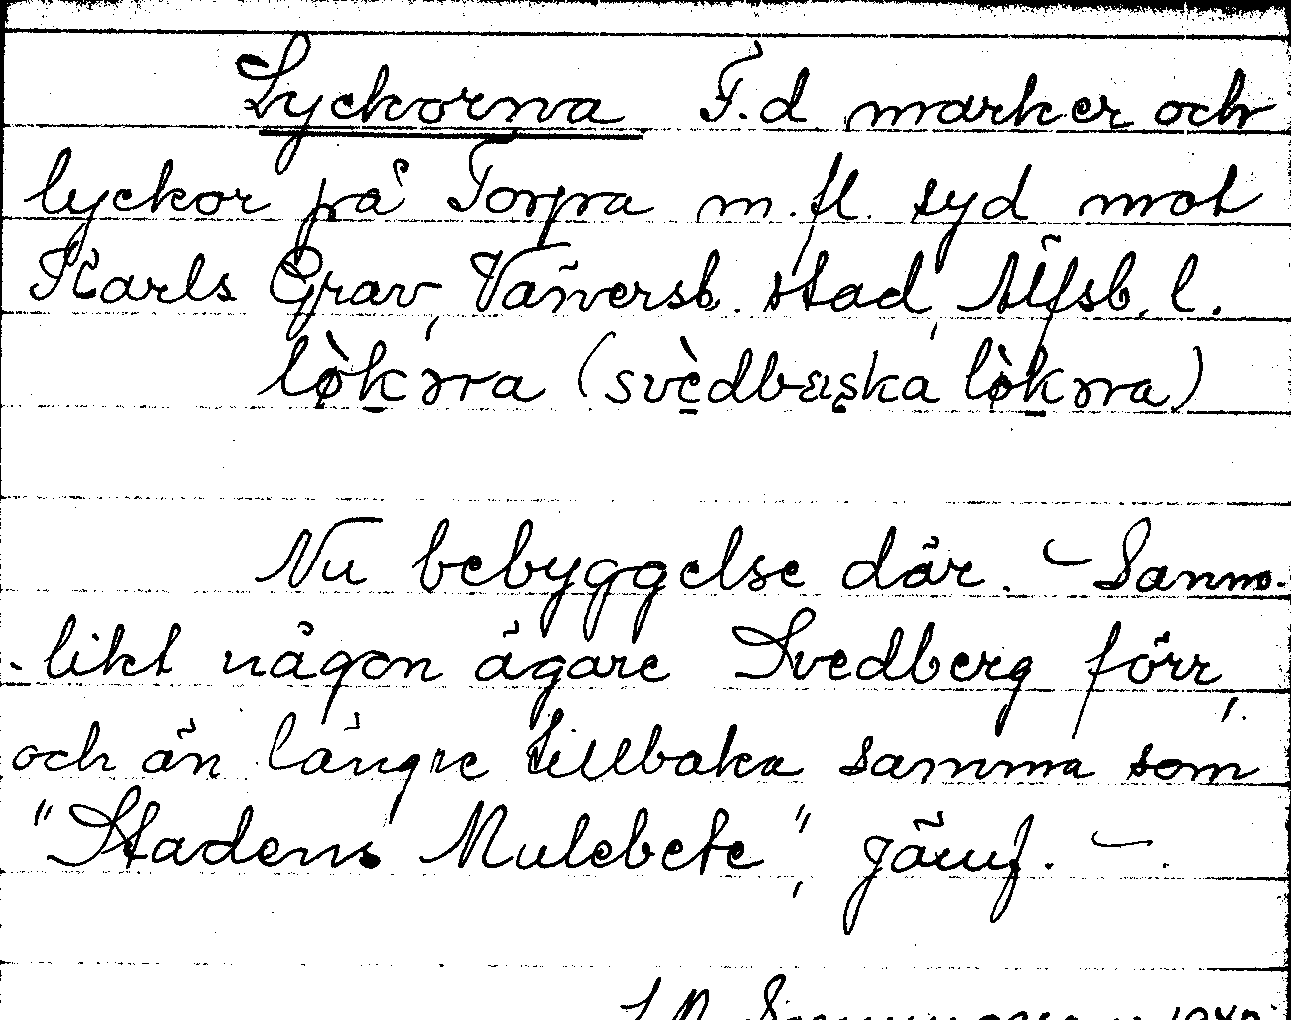 Lyckorna F.d marker och
lyckor på Torpa m.fl. syd mot
Karls Grav, Vänersb. stad, Älfsb. l.
lø̀kɔrna (svèdbærska lø̀kɔrna)
Nu bebyggelse där. – Sanno-
-likt någon ägare Svedberg förr,
och än längre tillbaka samma som
"Stadens Mulebete", jämf. –.